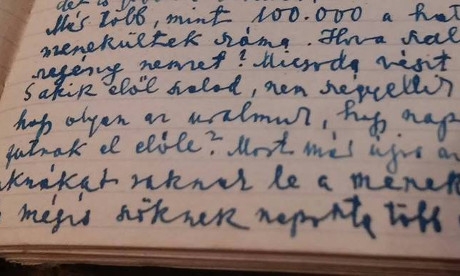 Más több, mint 100.000 a hat
menekültek száma. Hova szal
szegény nemzet? Micsoda vésit
S akik elől szalad, nem szégyellik
hogy olyan az uralmuk, hogy nap
futnak el előle? Most más ujra ar
aknákat raknak le a menek
mégis szöknek naponta több